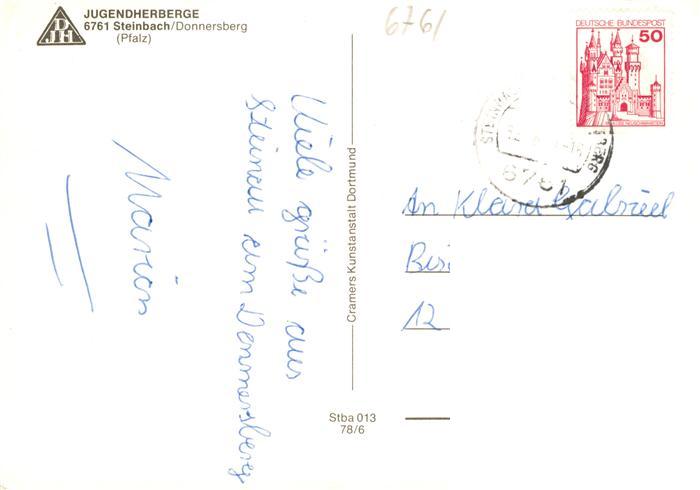 JUGENDHERBERGE
6761 Steinbach/Donnersberg
(Pfalz)
DJH
Viele grüße aus
Steinau am Donnersberg
Marion
Cramers Kunstanstalt Dortmund
Stba 013
78/6
6761
DEUTSCHE BUNDESPOST
50
6761
An Klara Gabriel
12